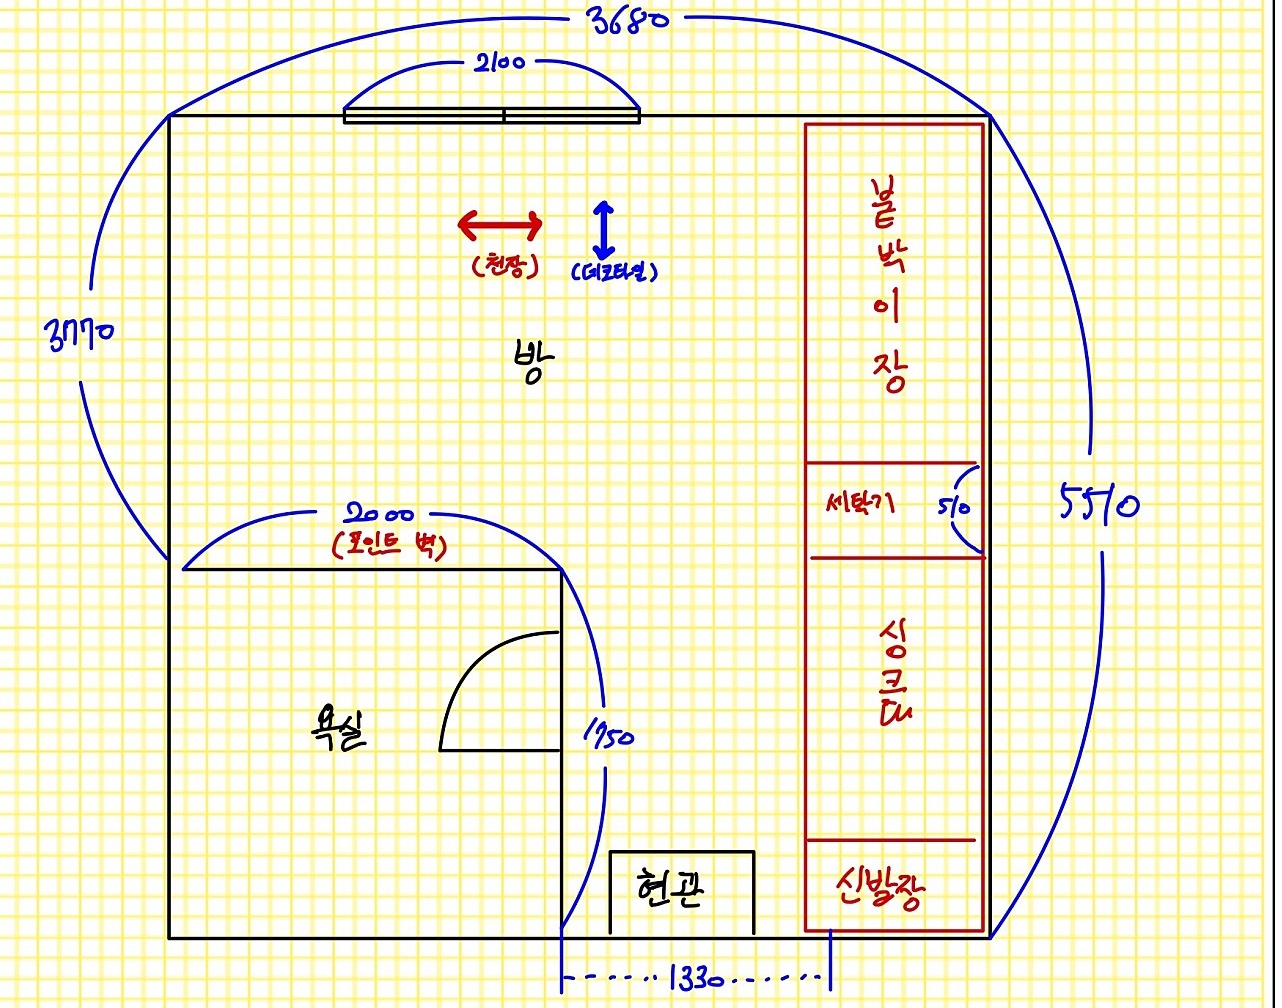 3680
2100
붙박이장
(천장)
(데코타일)
3770
방
세탁기
510
5510
2000
(포인트 벽)
싱크대
욕실
1750
현관
신발장
1330